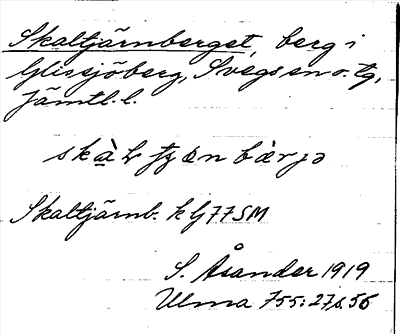 Skaltjärnberget, berg i
Glissjöberg, Svegs sn o. tg,
Jämtl. l.
Skaltjärnb. k
S. Åsander 1919
Ulma 755:27 s. 56